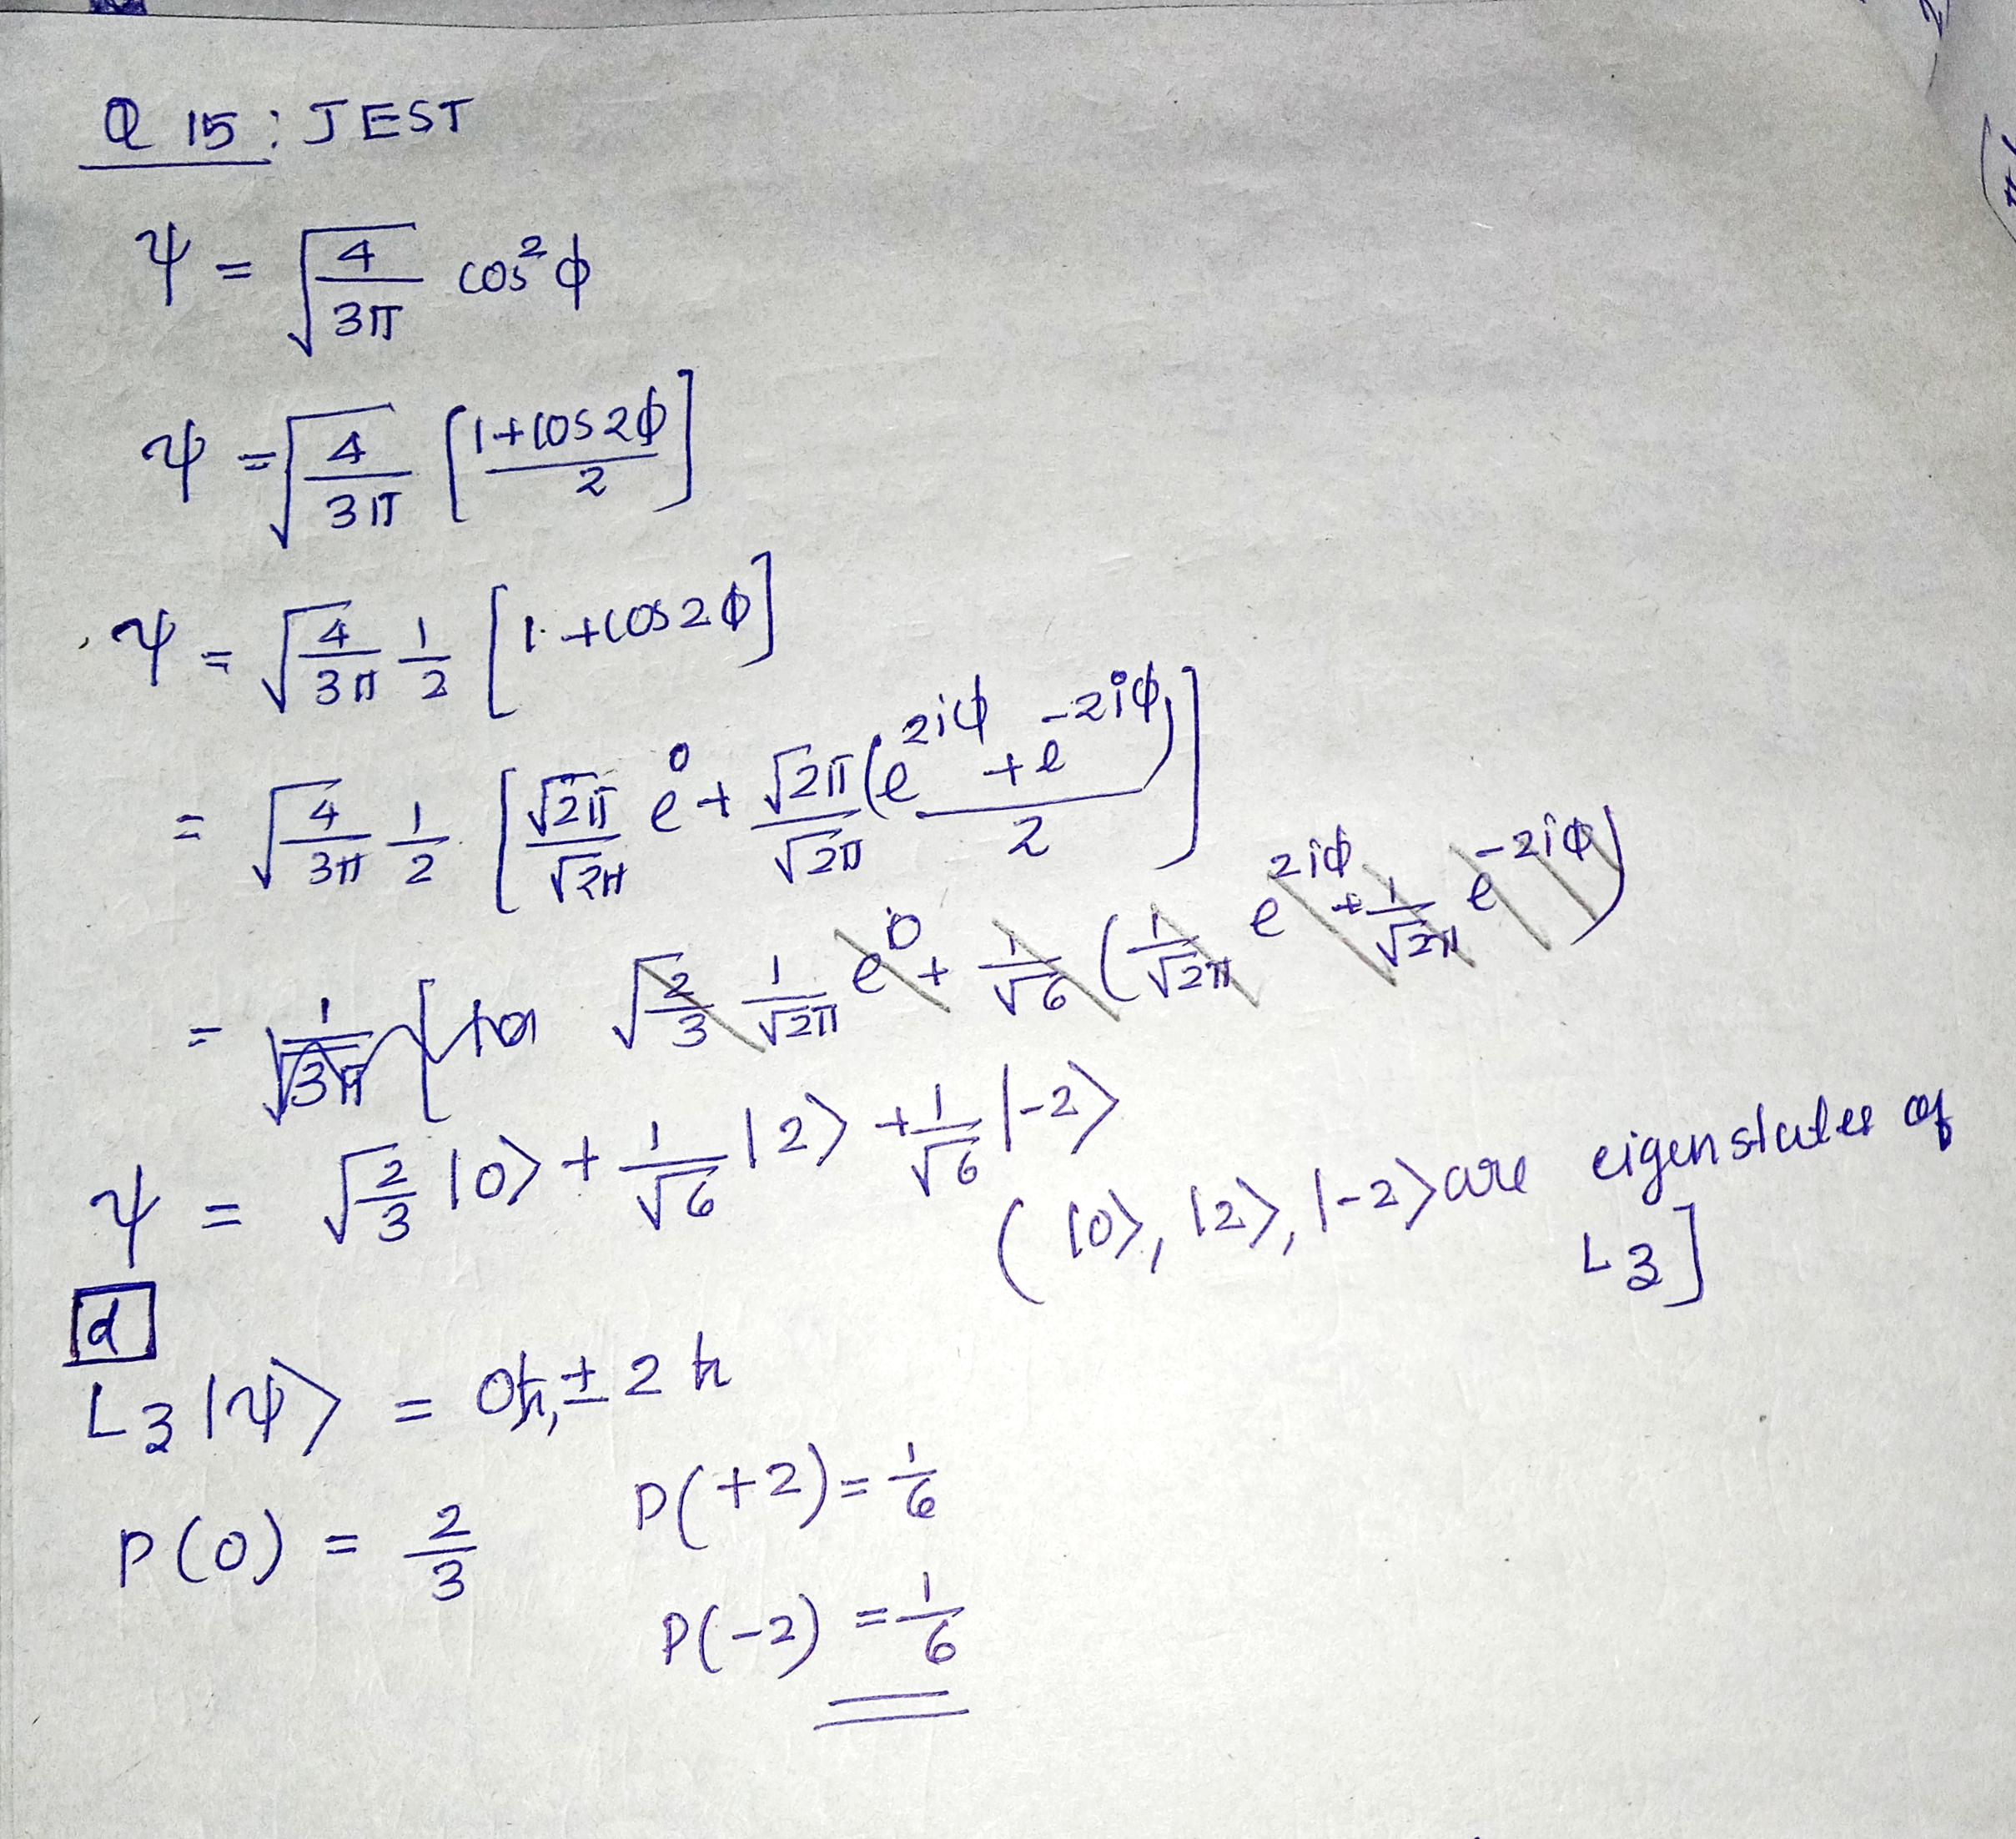 Q 15 : JEST
ψ = √(4/3π) cos²φ
ψ = √(4/3π) [(1+cos2φ)/2]
ψ = √(4/3π) 1/2 [1+cos2φ]
= √(4/3π) 1/2 [√2π/√2π e⁰ + √2π/√2π (e^{2iφ} + e^{-2iφ})/2]
= √(2/3) 1/√2π e⁰ + 1/√6 (1/√2π e^{2iφ} + 1/√2π e^{-2iφ})
ψ = √(2/3) |0⟩ + 1/√6 |2⟩ + 1/√6 |-2⟩
( |0⟩, |2⟩, |-2⟩ are eigenstates of
L3]
d
L3|ψ⟩ = 0ħ, ±2ħ
P(0) = 2/3 P(+2) = 1/6
P(-2) = 1/6